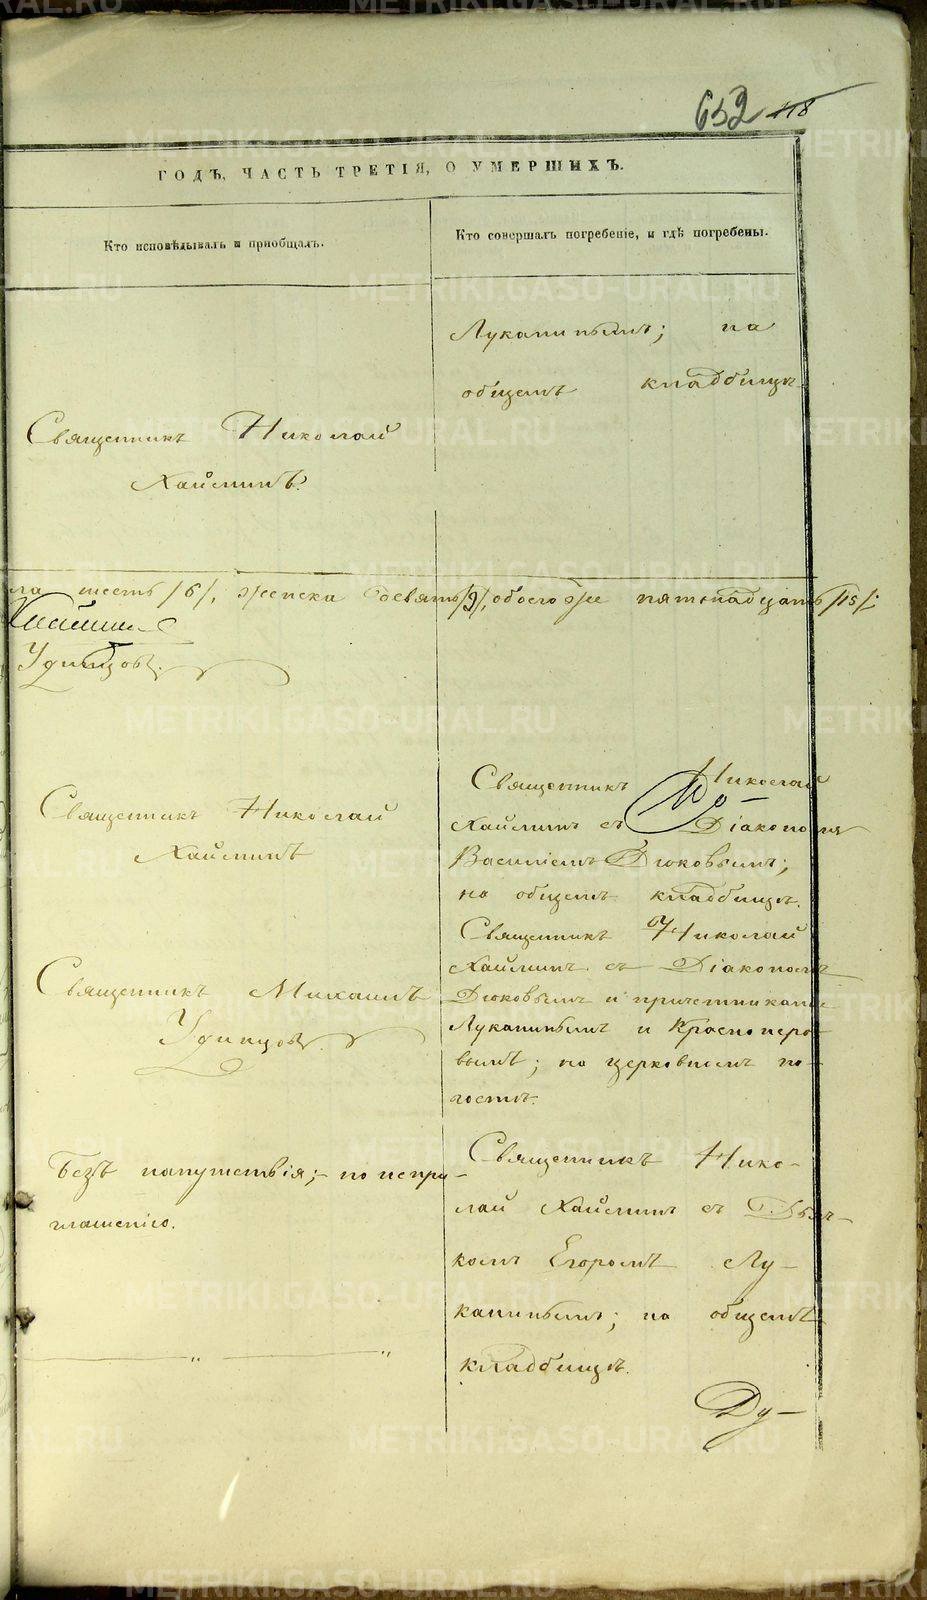 652 118
ГОДЪ, ЧАСТЬ ТРЕТІЯ, О УМЕРШИХЪ.
Кто исповѣдывалъ и пріобщалъ.
Кто совершалъ погребеніе, и гдѣ погребены.
Лукапинымъ; на
общемъ кладбищѣ
Священникъ Николай
Хайминъ.
ла шесть /6/, женска девять /9/, обоего же пятьнадцать /15/.
Удинцовъ.
Священникъ Николай
Хайминъ
Священникъ Николай
Хайминъ съ Діакономъ
Василіемъ Дюковымъ;
на общемъ кладбищѣ.
Священникъ Михаилъ
Удинцовъ.
Священникъ Николай
Хайминъ съ Діакономъ
Дюковымъ и причетниками
Лукапинымъ и Краснопёро-
вымъ; на церковномъ по-
гостѣ.
Безъ напутствія; по непри-
глашенію.
Священникъ Нико-
лай Хайминъ съ Дья-
комъ Егоромъ Лу-
капинымъ; на общемъ
кладбищѣ.
Ду-
METRIKI.GASO-URAL.RU